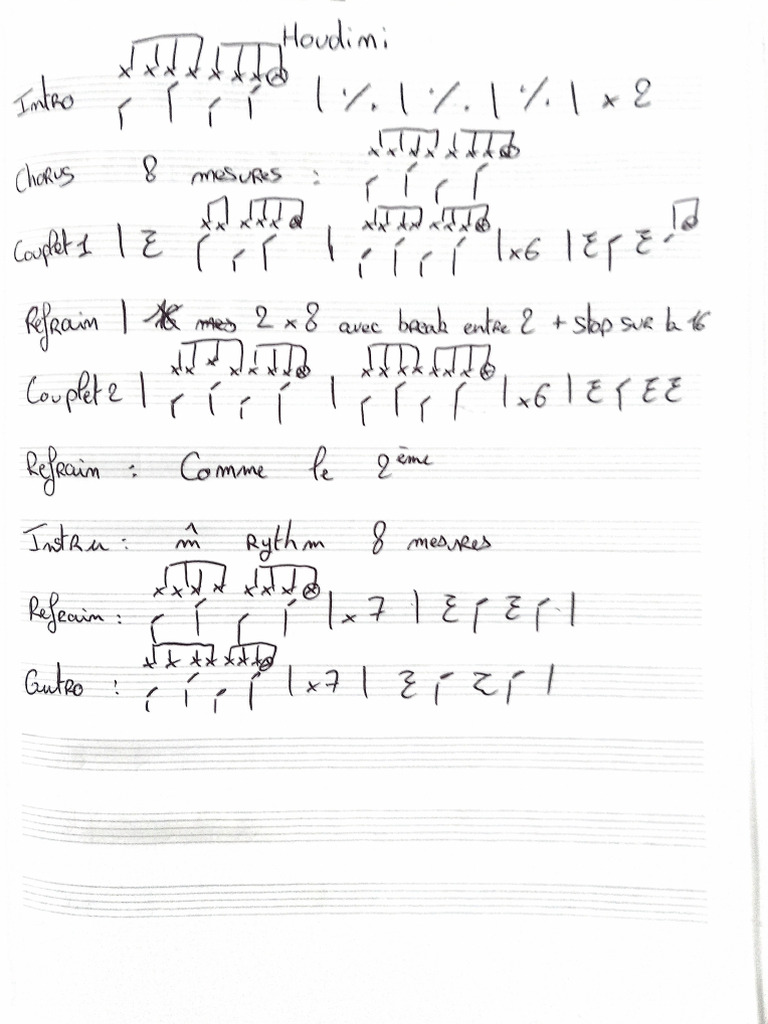 Houdini
Intro | ٪ | ٪ | ٪ | x 2
Chorus 8 mesures :
Couplet 1 | | | x6 |
Refrain | mes 2 x 8 avec break entre 2 + stop sur la 16
Couplet 2 | | | x6 |
Refrain : Comme le 2ème
Instru : m̂ Rythm 8 mesures
Refrain : | x 7 | |
Outro : | x7 | |